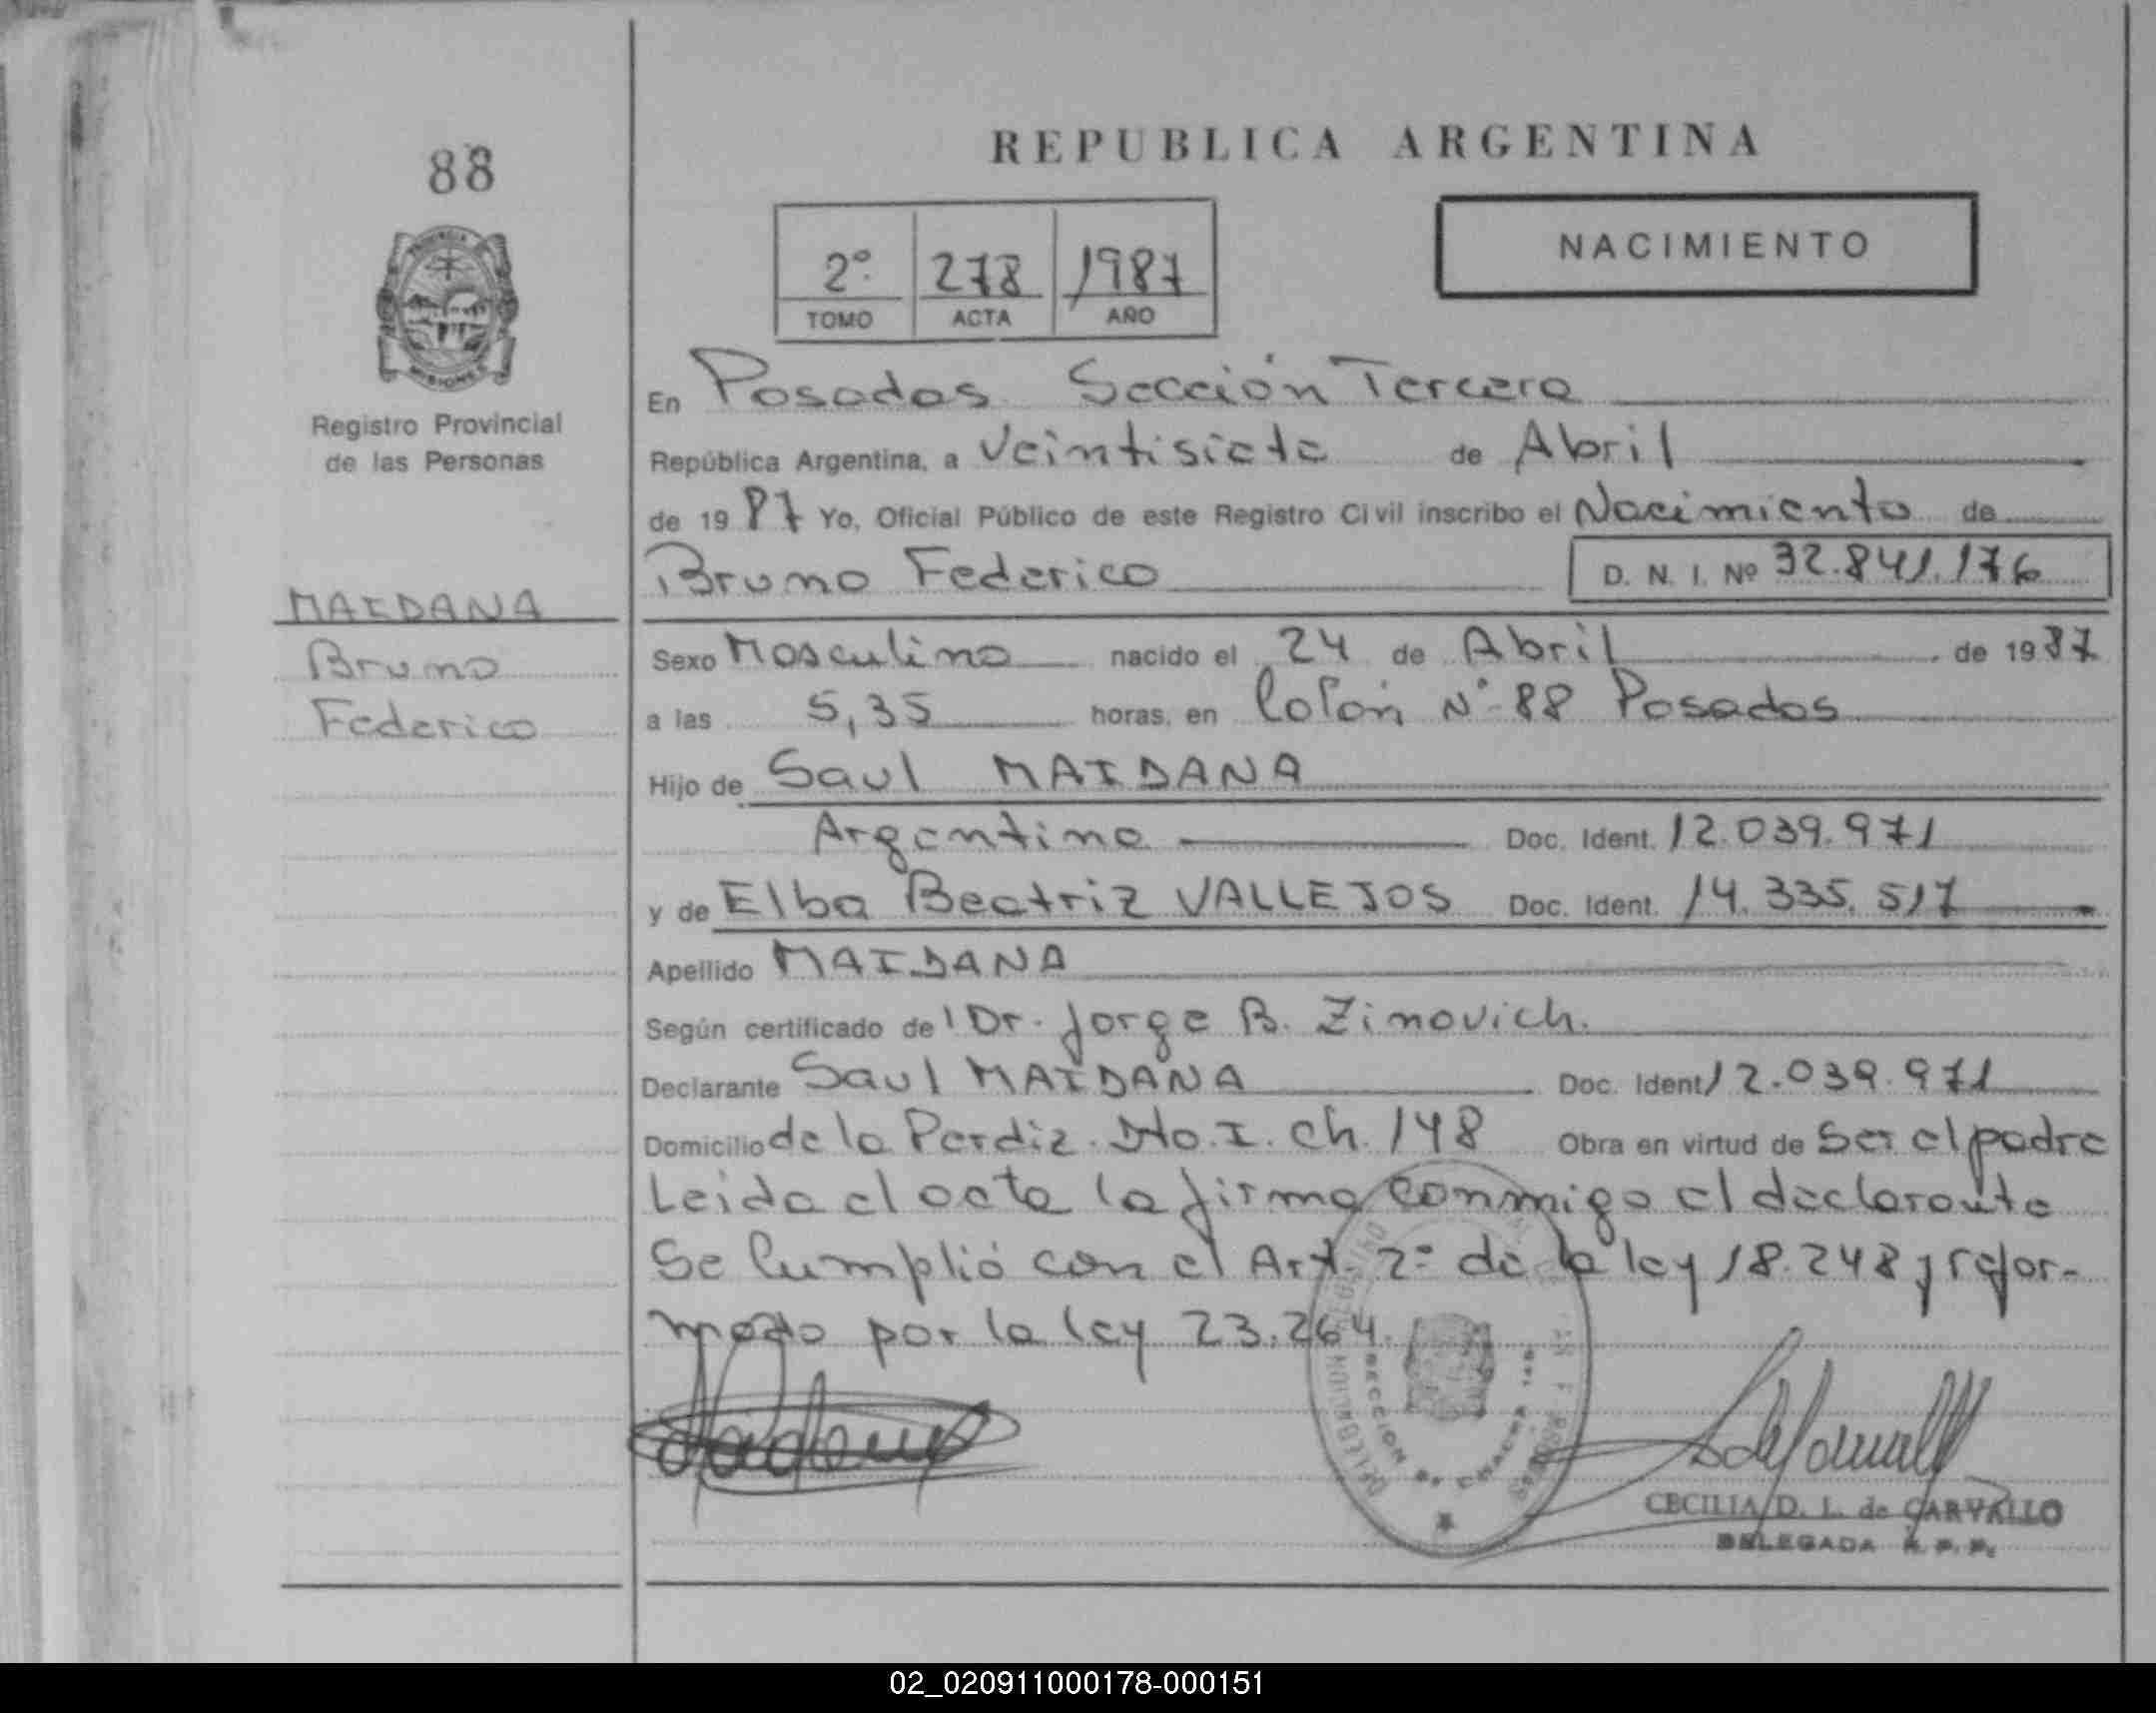 88
PROVINCIA
MISIONES
Registro Provincial
de las Personas
MAIDANA
Bruno
Federico
REPUBLICA ARGENTINA
2º 278 1987
TOMO ACTA AÑO
NACIMIENTO
En Posadas Sección Tercera
República Argentina, a Veintisiete de Abril
de 1987 Yo, Oficial Público de este Registro Civil inscribo el Nacimiento de
Bruno Federico D. N. I. Nº 32.841.176
Sexo Masculino nacido el 24 de Abril de 1987
a las 5,35 horas, en Colón Nº 88 Posadas
Hijo de Saul MAIDANA
Argentino Doc. Ident. 12.039.971
y de Elba Beatriz VALLEJOS Doc. Ident. 14.335.517
Apellido MAIDANA
Según certificado del Dr. Jorge B. Zinovich.
Declarante Saul MAIDANA Doc. Ident 12.039.971
Domicilio de la Perdiz. Dto. I. Ch. 148 Obra en virtud de Ser el padre
Leida el acta la firma conmigo el declarante
Se Cumplió con el Art. 2º de la ley 18.248 y refor-
mado por la ley 23.264.
SECCION DE CHACRA 148
CECILIA D. L. de CARVALLO
DELEGADA R. P. P.
02_020911000178-000151